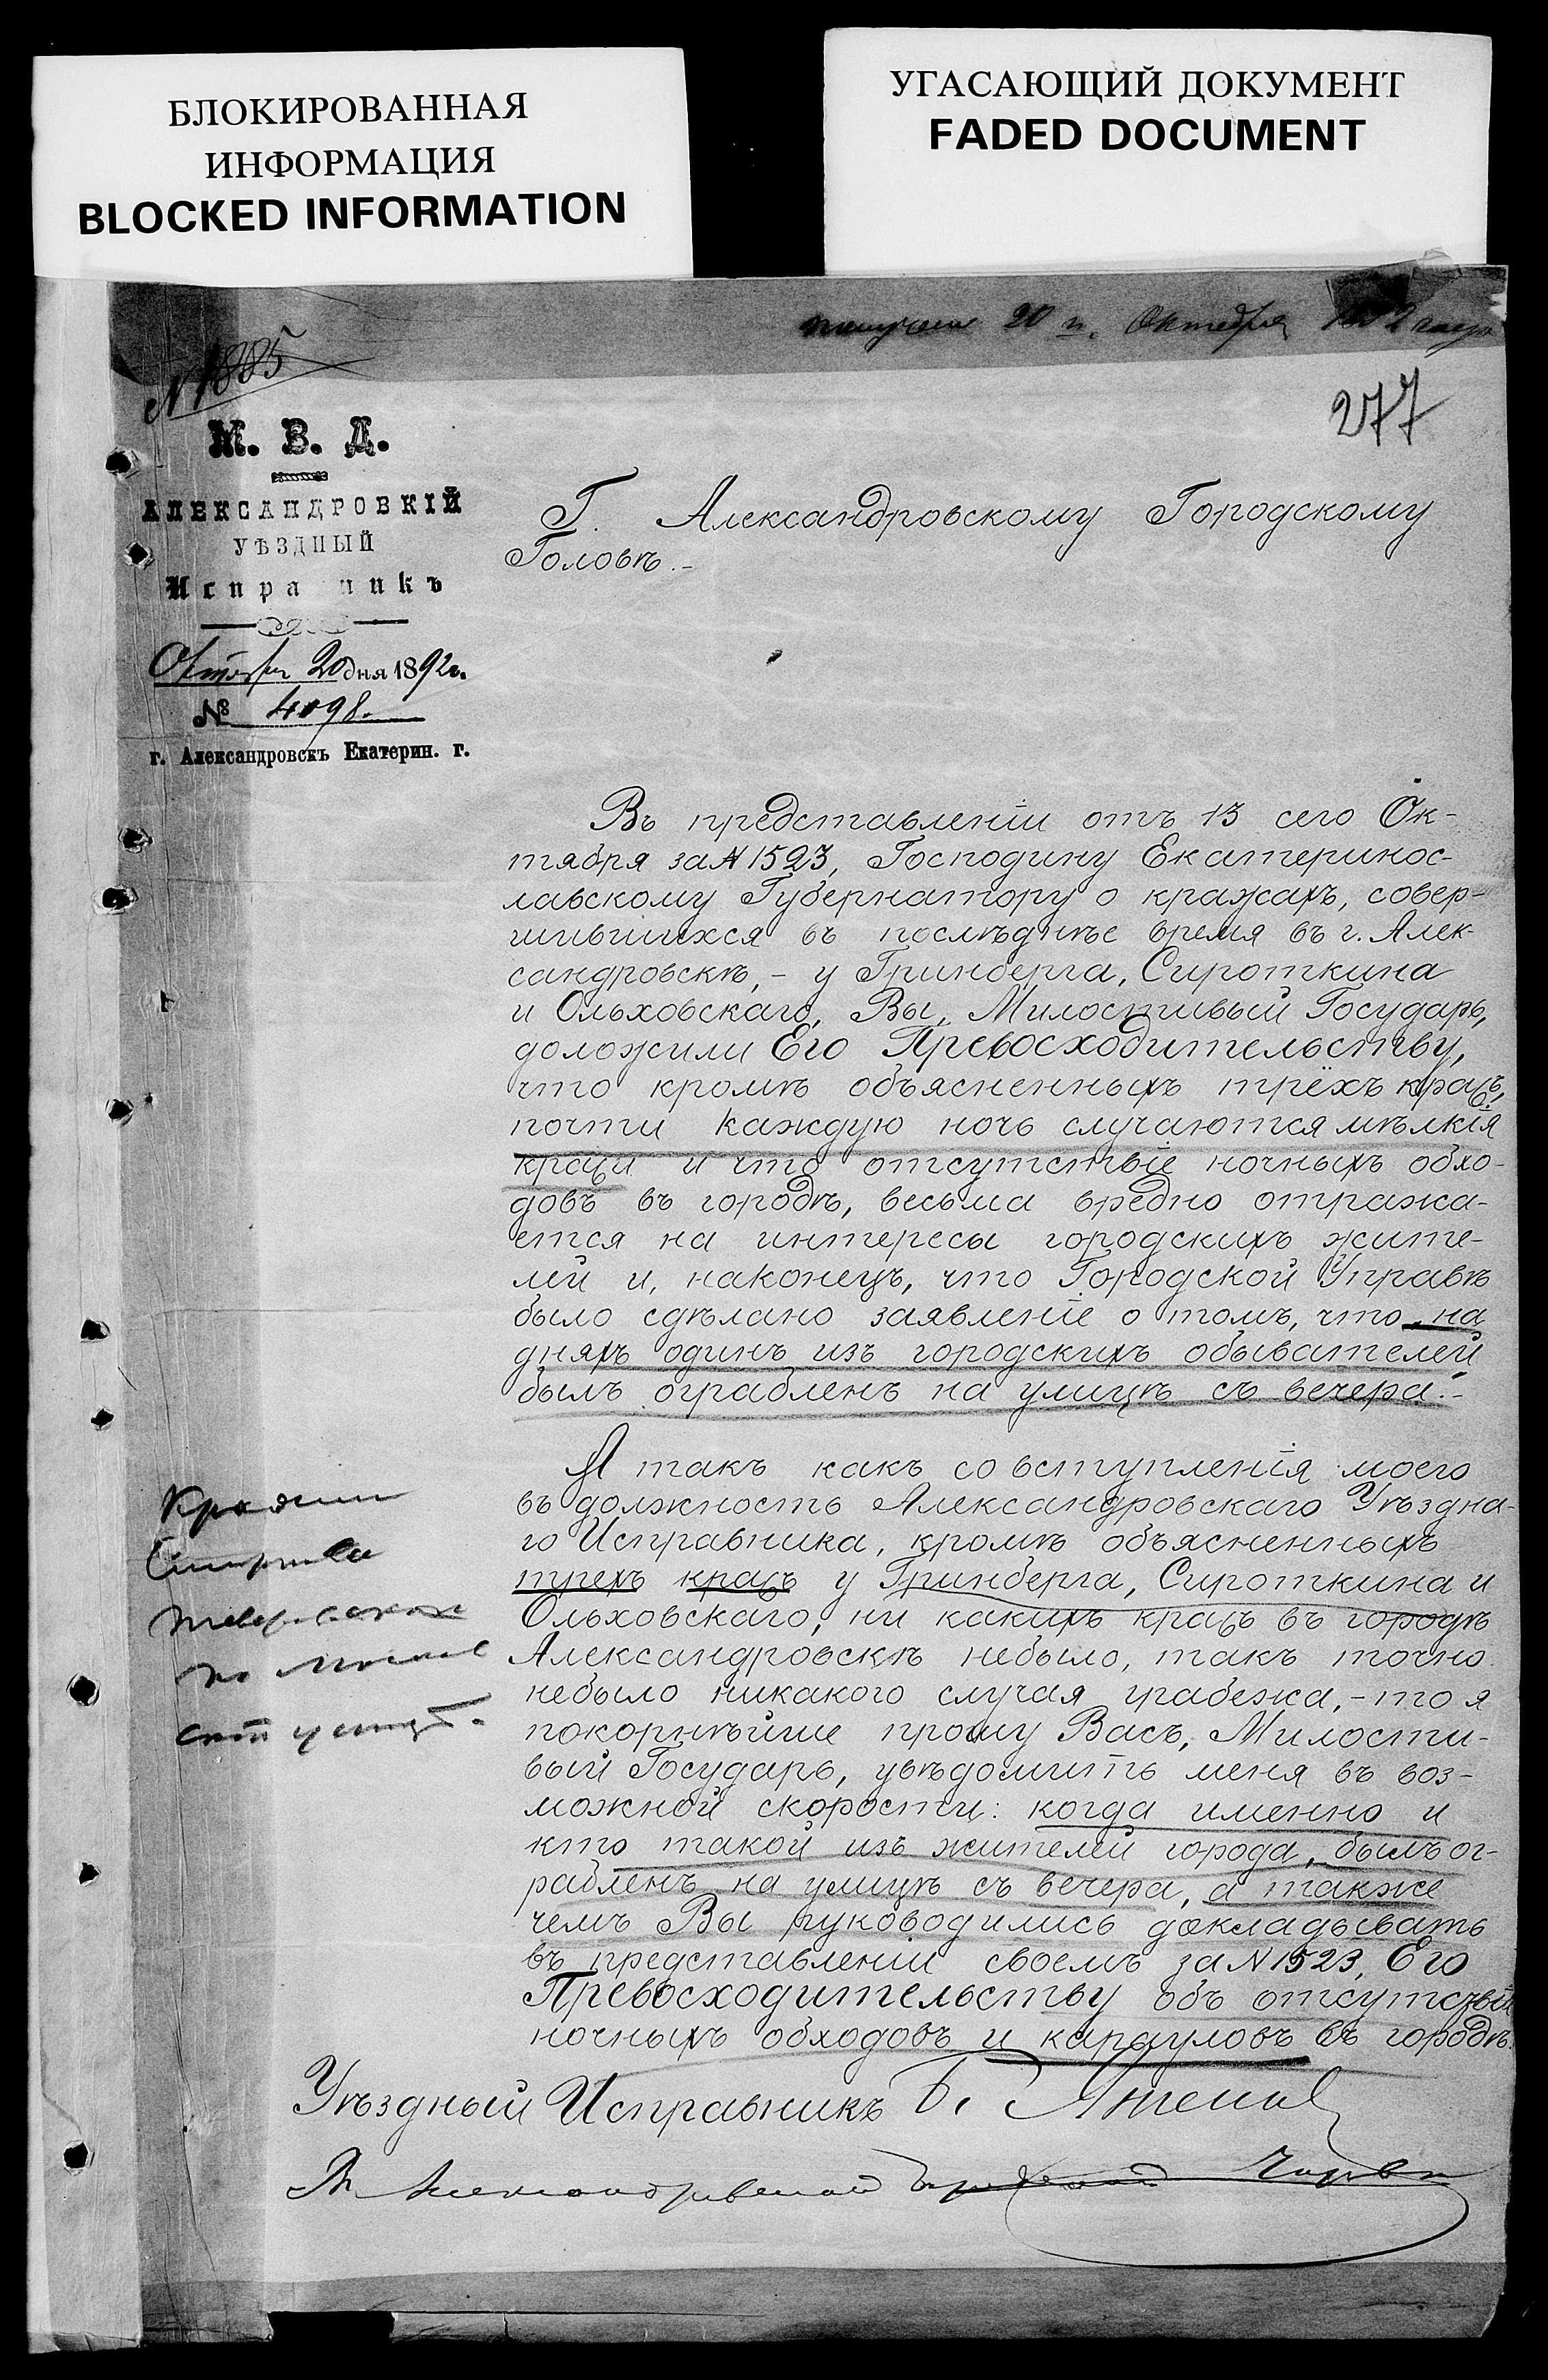 БЛОКИРОВАННАЯ
ИНФОРМАЦИЯ
BLOCKED INFORMATION
УГАСАЮЩИЙ ДОКУМЕНТ
FADED DOCUMENT
20 Октября
N 1885
277
М. В. Д.
АЛЕКСАНДРОВКІЙ
УѢЗДНЫЙ
Испра никъ
20 дня 1892 г.
№ 4098.
г. Александровскъ Екатерин. г.
Г. Александровскому Городскому
Головѣ.-
Въ представленіи отъ 13 сего Ок-
тября за N 1523, Господину Екатеринос-
лавскому Губернатору о кражахъ, совер-
шившихся въ послѣднѣе время въ г. Алек-
сандровскѣ,- у Гринберга, Сироткина
и Ольховскаго, Вы, Милостивый Государь,
доложили Его Превосходительству,
что кромѣ объясненныхъ трёхъ
почти каждую ночь случаются мѣлкія
и что отсутствіе ночныхъ обхо-
довъ въ городѣ, весьма вредно отража-
ется на интересы городскихъ жите-
лей и, наконецъ, что Городской Управѣ
было сдѣлано заявленіе о томъ, что на
дняхъ одинъ изъ городскихъ обывателей
былъ ограбленъ на улицѣ съ вечера.-
А такъ какъ со вступленія моего
въ должность Александровскаго Уѣздна-
го Исправника, кромѣ объясненныхъ
трехъ у Гринберга, Сироткина и
Ольховскаго, ни какихъ въ городѣ
Александровскѣ небыло, такъ точно
небыло никакого случая грабежа,- то я
покорнѣйше прошу Васъ, Милости-
вый Государь, увѣдомить меня въ воз-
можной скорости: когда именно и
кто такой изъ жителей города, былъ ог-
рабленъ на улицѣ съ вечера, а также
чемъ Вы руководились докладывать
въ представленіи своемъ за N 1523, Его
Превосходительству объ отсутствіи
ночныхъ обходовъ и карауловъ въ городѣ.
Уѣздный Исправникъ